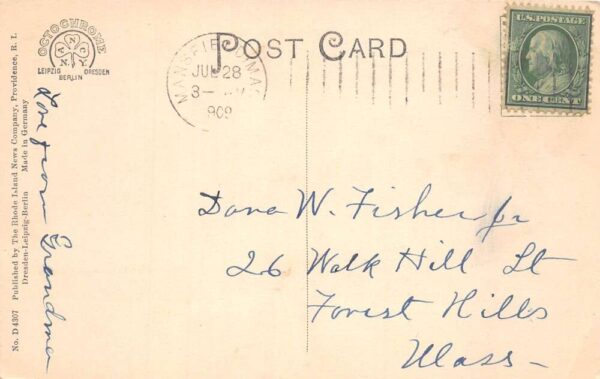 OCTOCHROME
A N C
N.Y.
LEIPZIG DRESDEN
BERLIN
POST CARD
MANSFIELD MASS
JUL 28
3-
1909
U.S. POSTAGE
ONE CENT
No. D4307 Published by The Rhode Island News Company, Providence, R. I.
Dresden-Leipzig-Berlin Made in Germany
Love from Grandma
Dana W. Fisher Jr
26 Walk Hill St
Forest Hills
Mass-